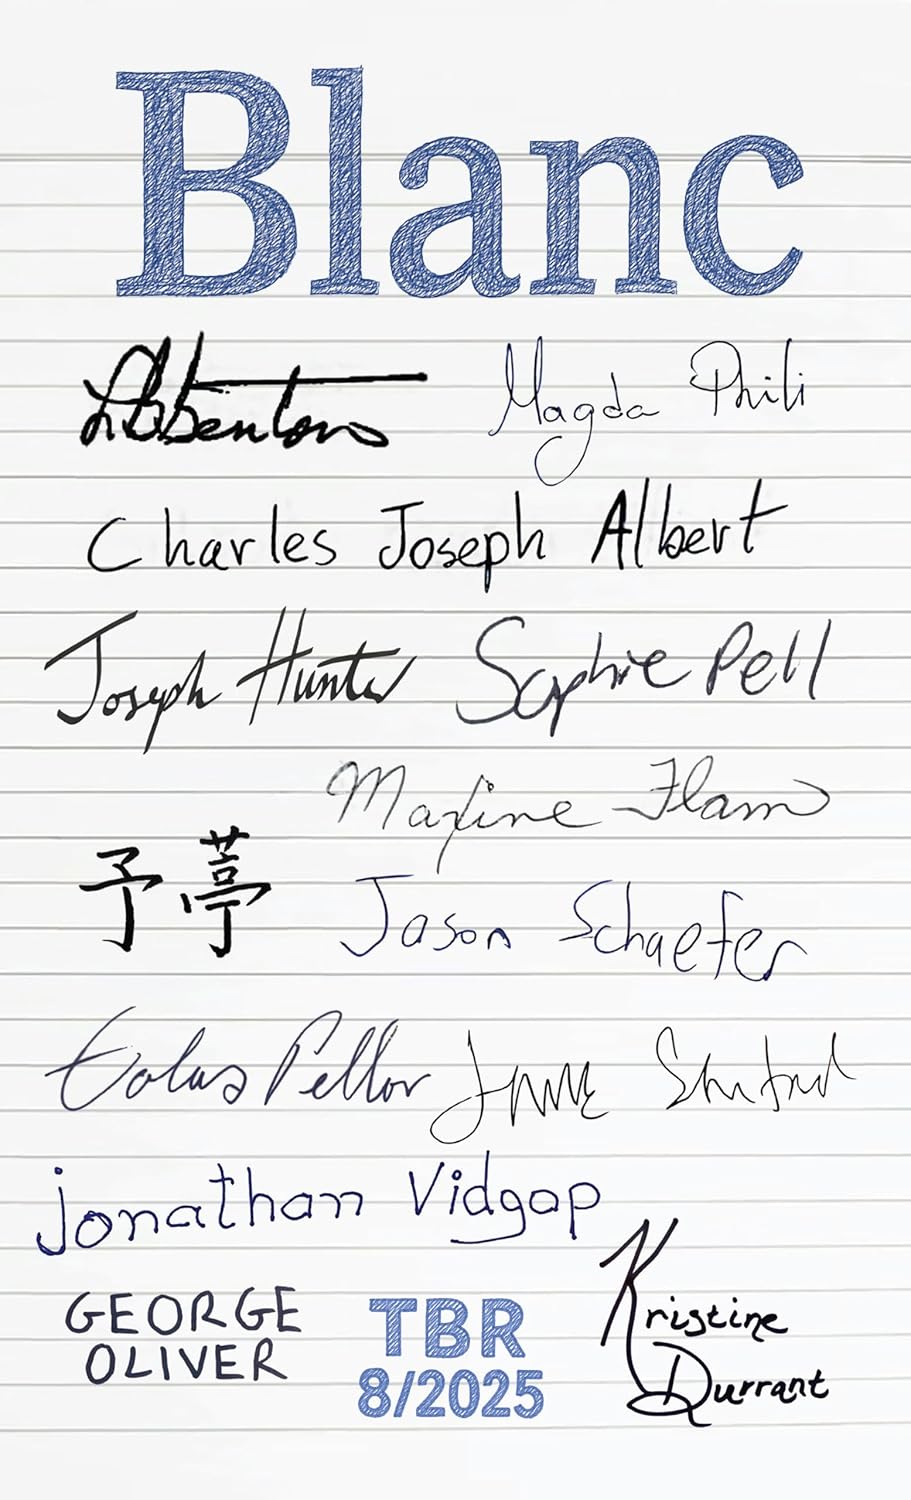 Blanc
Magda Phili
Charles Joseph Albert
Joseph Hunter Sophie Pell
Maxine Flam
予葶
Jason Schaefer
Pellor
Jonathan Vidgop
GEORGE
OLIVER
TBR
8/2025
Kristine
Durrant